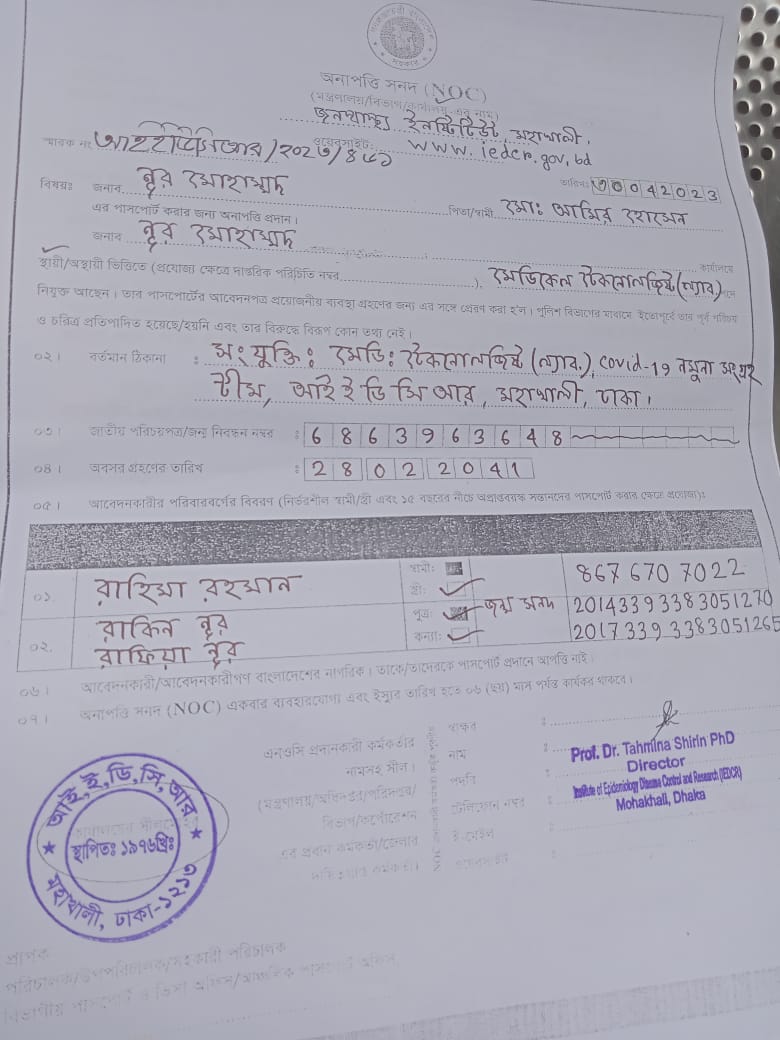 অনাপত্তি সনদ (NOC)
(মন্ত্রণালয়/বিভাগ/কার্যালয় এর নাম)
জনস্বাস্থ্য ইনস্টিটিউট, মহাখালী,
স্মারক নং ওয়েবসাইট: www.iedcr.gov.bd
বিষয়ঃ জনাব নূর মোহাম্মদ পিতা/স্বামী মোঃ আমির হোসেন তারিখ
এর পাসপোর্ট করার জন্য অনাপত্তি প্রদান।
জনাব নূর মোহাম্মদ কার্যালয়ে
স্থায়ী/অস্থায়ী ভিত্তিতে (প্রযোজ্য ক্ষেত্রে দাপ্তরিক পরিচিতি নম্বর ), মেডিকেল টেকনোলজিষ্ট (ল্যাব) পদে
নিযুক্ত আছেন। তার পাসপোর্টের আবেদনপত্র প্রয়োজনীয় ব্যবস্থা গ্রহণের জন্য এর সঙ্গে প্রেরণ করা হ'ল। পুলিশ বিভাগের মাধ্যমে ইতোপূর্বে তার পূর্ব পরিচয়
ও চরিত্র প্রতিপাদিত হয়েছে/হয়নি এবং তার বিরুদ্ধে বিরূপ কোন তথ্য নেই।
০২। বর্তমান ঠিকানা : সংযুক্তি: মেডি: টেকনোলজিষ্ট (ল্যাব.), covid-19 নমুনা সংগ্রহ
টীম, আই ই ডি সি আর, মহাখালী, ঢাকা।
০৩। জাতীয় পরিচয়পত্র/জন্ম নিবন্ধন নম্বর : 6863963648
০৪। অবসর গ্রহণের তারিখ : 28022041
০৫। আবেদনকারীর পরিবারবর্গের বিবরণ (নির্ভরশীল স্বামী/স্ত্রী এবং ১৫ বছরের নীচে অপ্রাপ্তবয়স্ক সন্তানদের পাসপোর্ট করার ক্ষেত্রে প্রযোজ্য):
০১. রাহিমা রহমান স্বামী: স্ত্রী: 867 670 7022
০২. রাকিন নূর পুত্র: জন্ম সনদ 20143393383051270
রাফিয়া নূর কন্যা: 20173393383051265
০৬। আবেদনকারী/আবেদনকারীগণ বাংলাদেশের নাগরিক। তাকে/তাদেরকে পাসপোর্ট প্রদানে আপত্তি নাই।
০৭। অনাপত্তি সনদ (NOC) একবার ব্যবহারযোগ্য এবং ইস্যুর তারিখ হতে ০৬ (ছয়) মাস পর্যন্ত কার্যকর থাকবে।
এনওসি প্রদানকারী কর্মকর্তার স্বাক্ষর :
নামসহ সীল। নাম : Prof. Dr. Tahmina Shirin PhD
পদবি : Director
Institute of Epidemiology Disease Control and Research (IEDCR)
টেলিফোন নম্বর : Mohakhali, Dhaka
বিভাগ/কর্পোরেশন
ই-মেইল :
এর প্রধান কর্মকর্তা/জেলার
আই, ই, ডি, সি, আর
স্থাপিতঃ ১৯৭৬খ্রিঃ
মহাখালী, ঢাকা-১২১৩
প্রাপক
পরিচালক/উপপরিচালক/সহকারী পরিচালক
বিভাগীয় পাসপোর্ট ও ভিসা অফিস/আঞ্চলিক পাসপোর্ট অফিস,